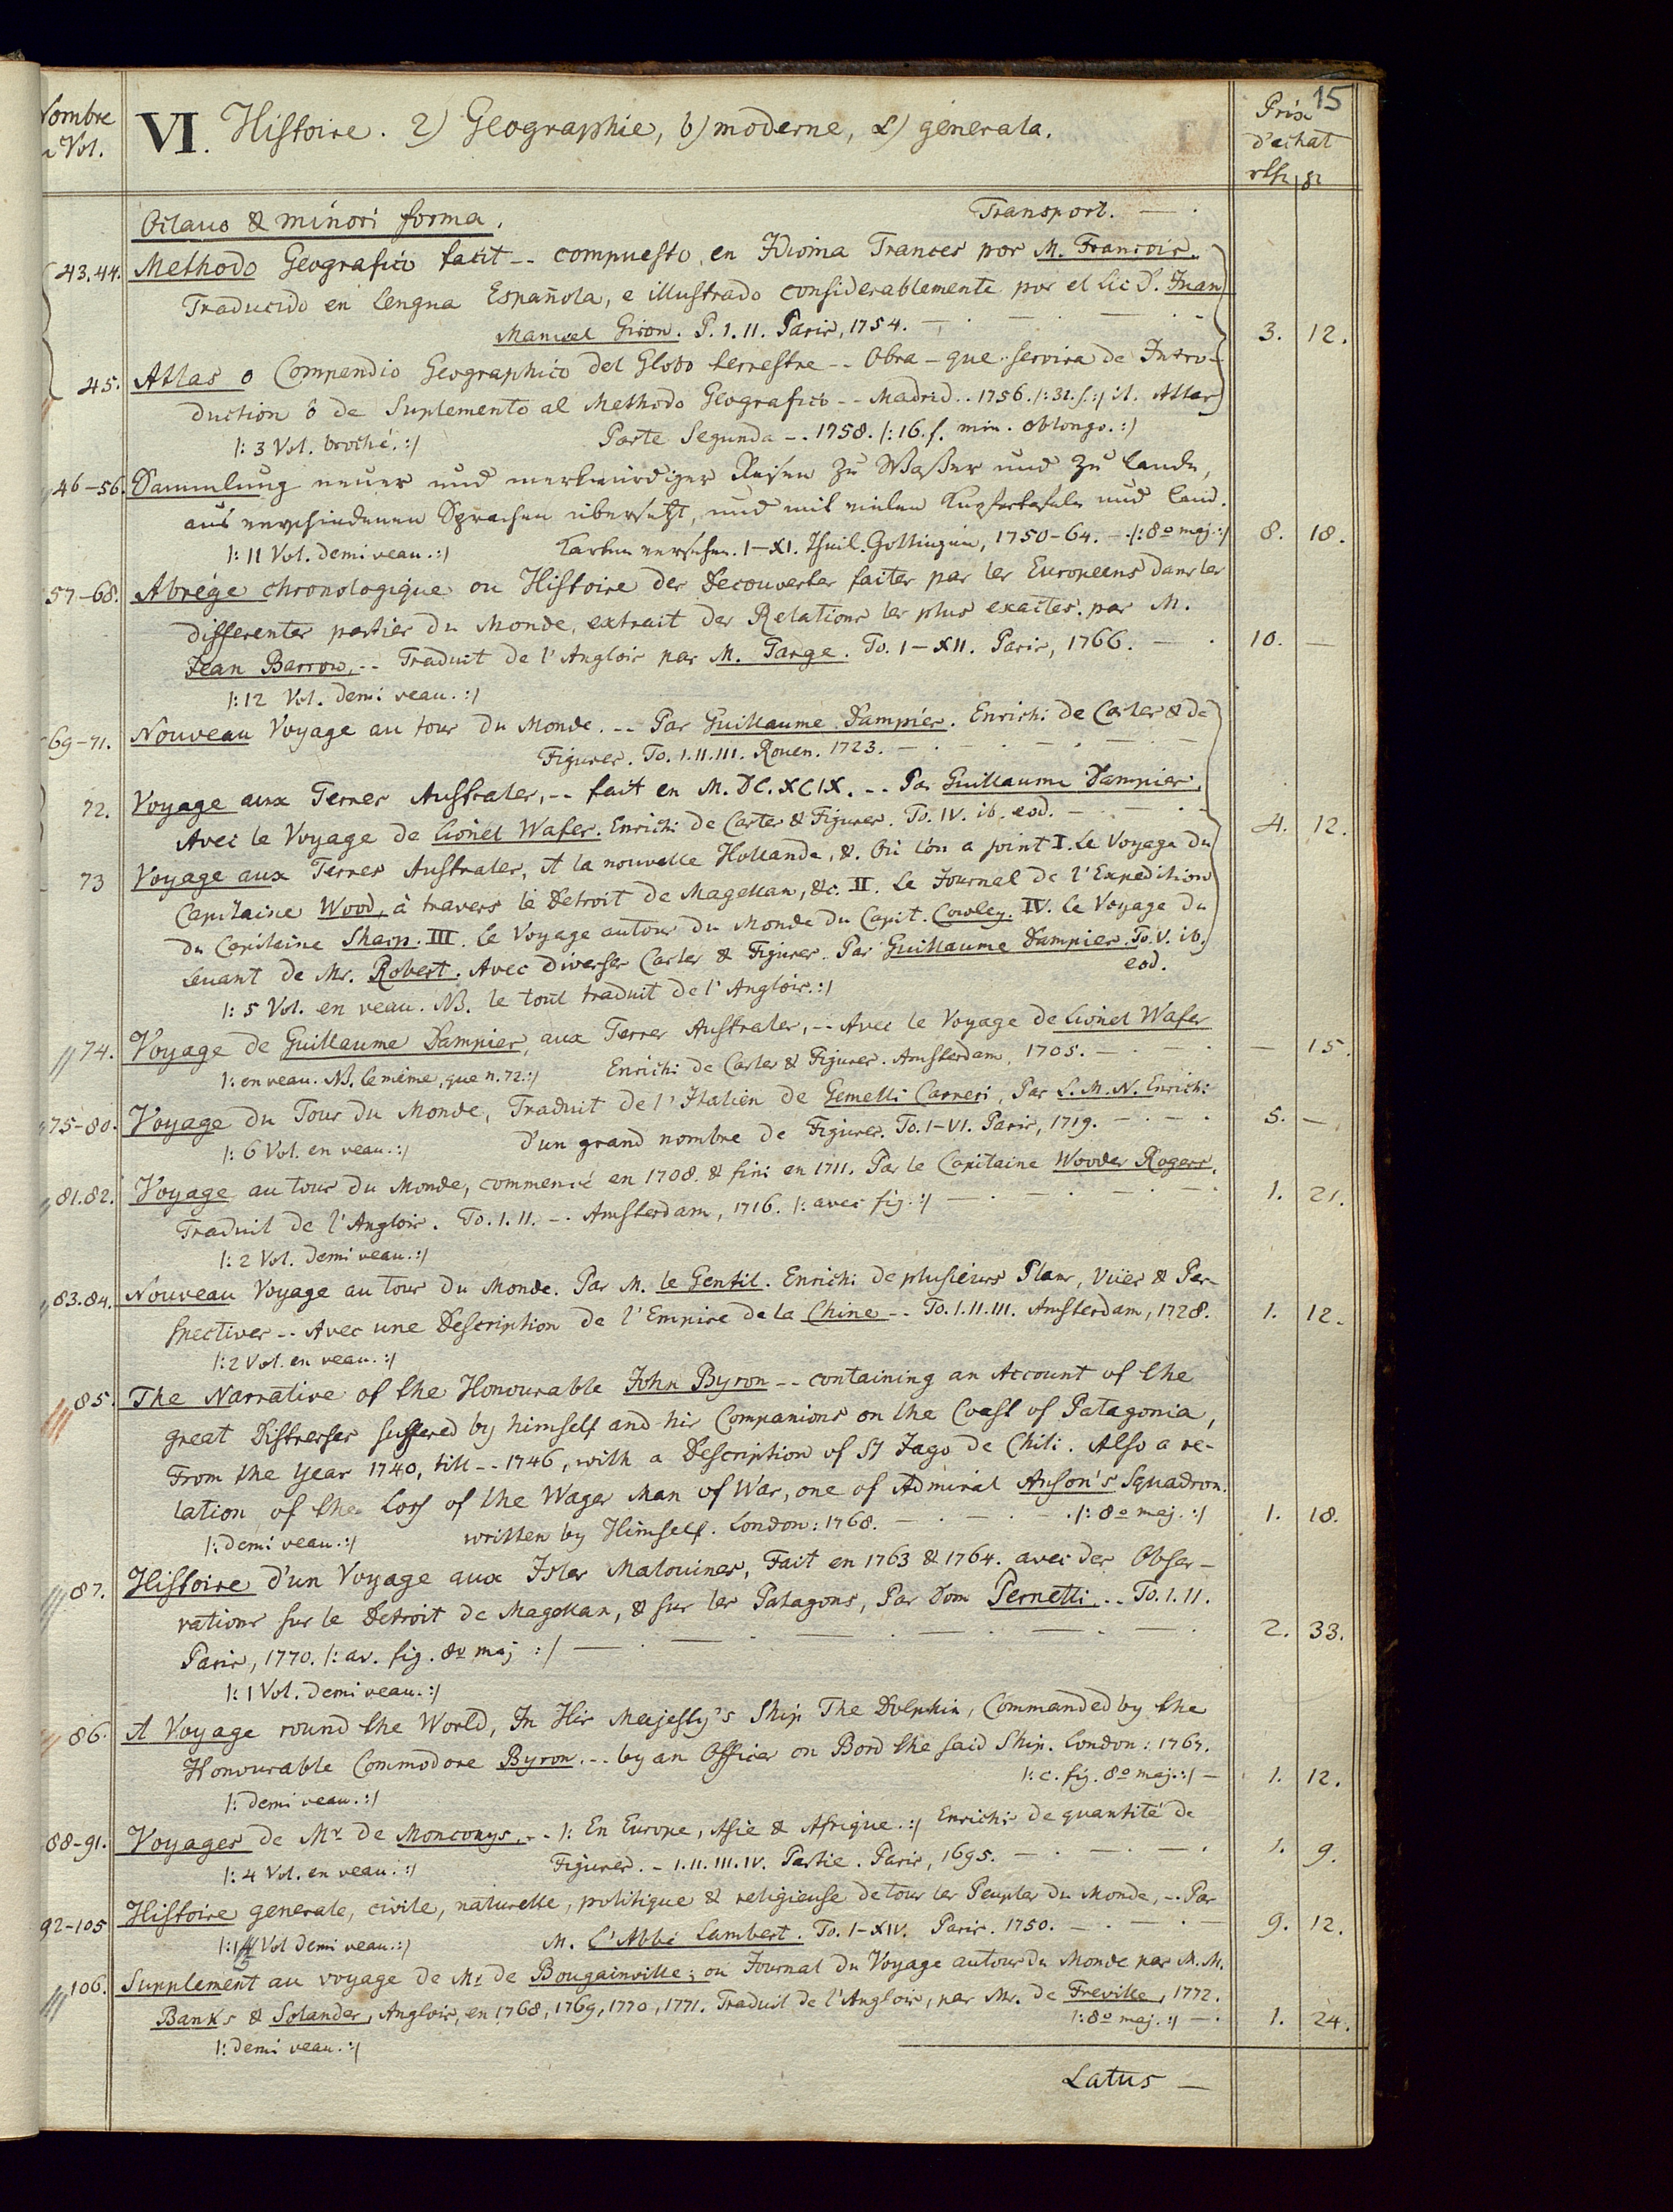 15
Nombre
Vol.
VI. Histoire. 2) Geographie, b) moderne, α) generala.
Prix
d'achat
Octavo & minori forma. Transport. — .
43.44. Methodo Geografico facil -- compuesto en Idioma Frances por M. Francois.
Traducido en Lengua Española, e illustrado considerablemente por el Lic D. Juan
Manuel Giron. P. I. II. Paris, 1754. — . — . — . 3. 12.
45. Atlas o Compendio Geographico del Globo terrestre -- Obra – que servira de Intro-
duction ô de Suplemento al Methodo Geografico -- Madrid .. 1756. /: 32. f. :/ it. Atlas
/: 3 Vol. broché. :/ Parte Segunda -. 1758. /: 16. f. min. oblongo. :/
46–56. Sammlung neuer und merkwürdiger Reisen zu Waßer und zu Lande,
aus verschiedenen Sprachen übersetzt, und mit vielen Kupfertafeln und Land-
/: 11 Vol. demi veau. :/ Karten versehen. I–XI. Theil. Gottingen, 1750–64. – . /: 8o maj. :/ 8. 18.
57–68. Abrégé chronologique ou Histoire des Decouvertes faites par les Europeens dans les
differentes parties du Monde, extrait des Relations les plus exactes. par M.
Jean Barrow, -- Traduit de l'Anglois par M. Targe. To. I–XII. Paris, 1766. — . 10. —
/: 12 Vol. demi veau. :/
69–71. Nouveau Voyage au tour du Monde. -- Par Guillaume Dampier. Enrichi de Cartes & de
Figures. To. I. II. III. Rouen. 1723. — . — . — . — . —
72. Voyage aux Terres Australes, -- fait en M. DC. XCIX. -- Par Guillaume Dampier.
Avec le Voyage de Lionel Wafer. Enrichi de Cartes & Figures. To. IV. ib. eod. — . — . 4. 12.
73 Voyage aux Terres Australes, et la nouvelle Hollande, &. Où l'on a joint I. Le Voyage du
Capitaine Wood, à travers le Detroit de Magellan, &c. II. Le Journal de l'Expedition
du Capitaine Sharp. III. Le Voyage autour du Monde du Capit. Cowley. IV. Le Voyage du
Levant de Mr. Robert. Avec diverses Cartes & Figures. Par Guillaume Dampier. To. V. ib.
eod.
/: 5 Vol. en veau. NB. le tout traduit de l'Anglois. :/
74. Voyage de Guillaume Dampier, aux Terres Australes, -- Avec le Voyage de Lionel Wafer
/: en veau. NB. le même, que n. 72. :/ Enrichi de Cartes & Figures. Amsterdam, 1705. — . — . — 15.
75–80. Voyage du Tour du Monde, Traduit de l'Italien de Gemelli Carreri, Par L. M. N. Enrichi
/: 6 Vol. en veau. :/ d'un grand nombre de Figures. To. I–VI. Paris, 1719. — . — . 5. —
81.82. Voyage autour du Monde, commencé en 1708. & fini en 1711. Par le Capitaine Woodes Rogers.
Traduit de l'Anglois. To. I. II. -. Amsterdam, 1716. /: avec fig. :/ — . — . — . 1. 21.
/: 2 Vol. demi veau. :/
83.84. Nouveau Voyage au tour du Monde. Par M. le Gentil. Enrichi de plusieurs Plans, Vuës & Per-
spectives -- Avec une Description de l'Empire de la Chine -- To. I. II. III. Amsterdam, 1728. 1. 12.
/: 2 Vol. en veau. :/
85. The Narrative of the Honourable John Byron -- containing an Account of the
great Distresses suffered by himself and his Companions on the Coast of Patagonia,
From the Year 1740, till -- 1746, with a Description of St Jago de Chili. Also a re-
lation of the Loss of the Wager Man of War, one of Admiral Anson's Squadron.
/: demi veau. :/ written by Himself. London: 1768. — . — . — . /: 8o maj. :/ 1. 18.
87. Histoire d'un Voyage aux Isles Malouines, Fait en 1763 & 1764. avec des Obser-
vations sur le Detroit de Magellan, & sur les Patagons, Par Dom Pernetti. -. To. I. II.
Paris, 1770. /: av. fig. 8o maj :/ — . — . — . — . — . — . 2. 33.
/: 1 Vol. demi veau. :/
86. A Voyage round the World, In His Majesty's Ship The Dolphin, Commanded by the
Honourable Commodore Byron. -- by an Officer on Bord the said Ship. London: 1767.
/: c. fig. 8o maj. :/ — 1. 12.
/: demi veau. :/
88–91. Voyages de Mr. de Monconys, -- /: En Europe, Asie & Afrique. :/ Enrichis de quantité de
/: 4 Vol. en veau. :/ Figures. – I. II. III. IV. Partie. Paris, 1695. — . — . — . 1. 9.
92–105 Histoire generale, civile, naturelle, politique & religieuse de tous les Peuples du Monde, -. Par
/: 14 Vol demi veau. :/ M. l'Abbé Lambert. To. I–XIV. Paris. 1750. — . — . — 9. 12.
106. Supplement au voyage de Mr de Bougainville; ou Journal du Voyage autour du Monde par M. M.
Banks & Solander, Anglois, en 1768, 1769, 1770, 1771. Traduit de l'Anglois, par Mr. de Freville, 1772.
/: 8o maj. :/ — . 1. 24.
/: demi veau. :/
Latus —